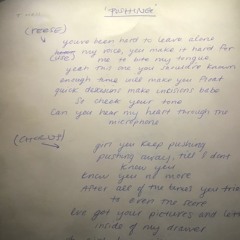 "PUSHING"
(VERSE)
you've been hard to leave alone
my vice, you make it hard for
me to bite my tongue
yeah this me you should've known
enough time will make you first
quick decisions make incisions babe
so check your tone
can you hear my heart through the
microphone
(CHORUS)
girl you keep pushing
pushing away, till I don't
know you
know you no more
After all of the times you tried
to even the score
I've got your pictures and
inside of my drawer